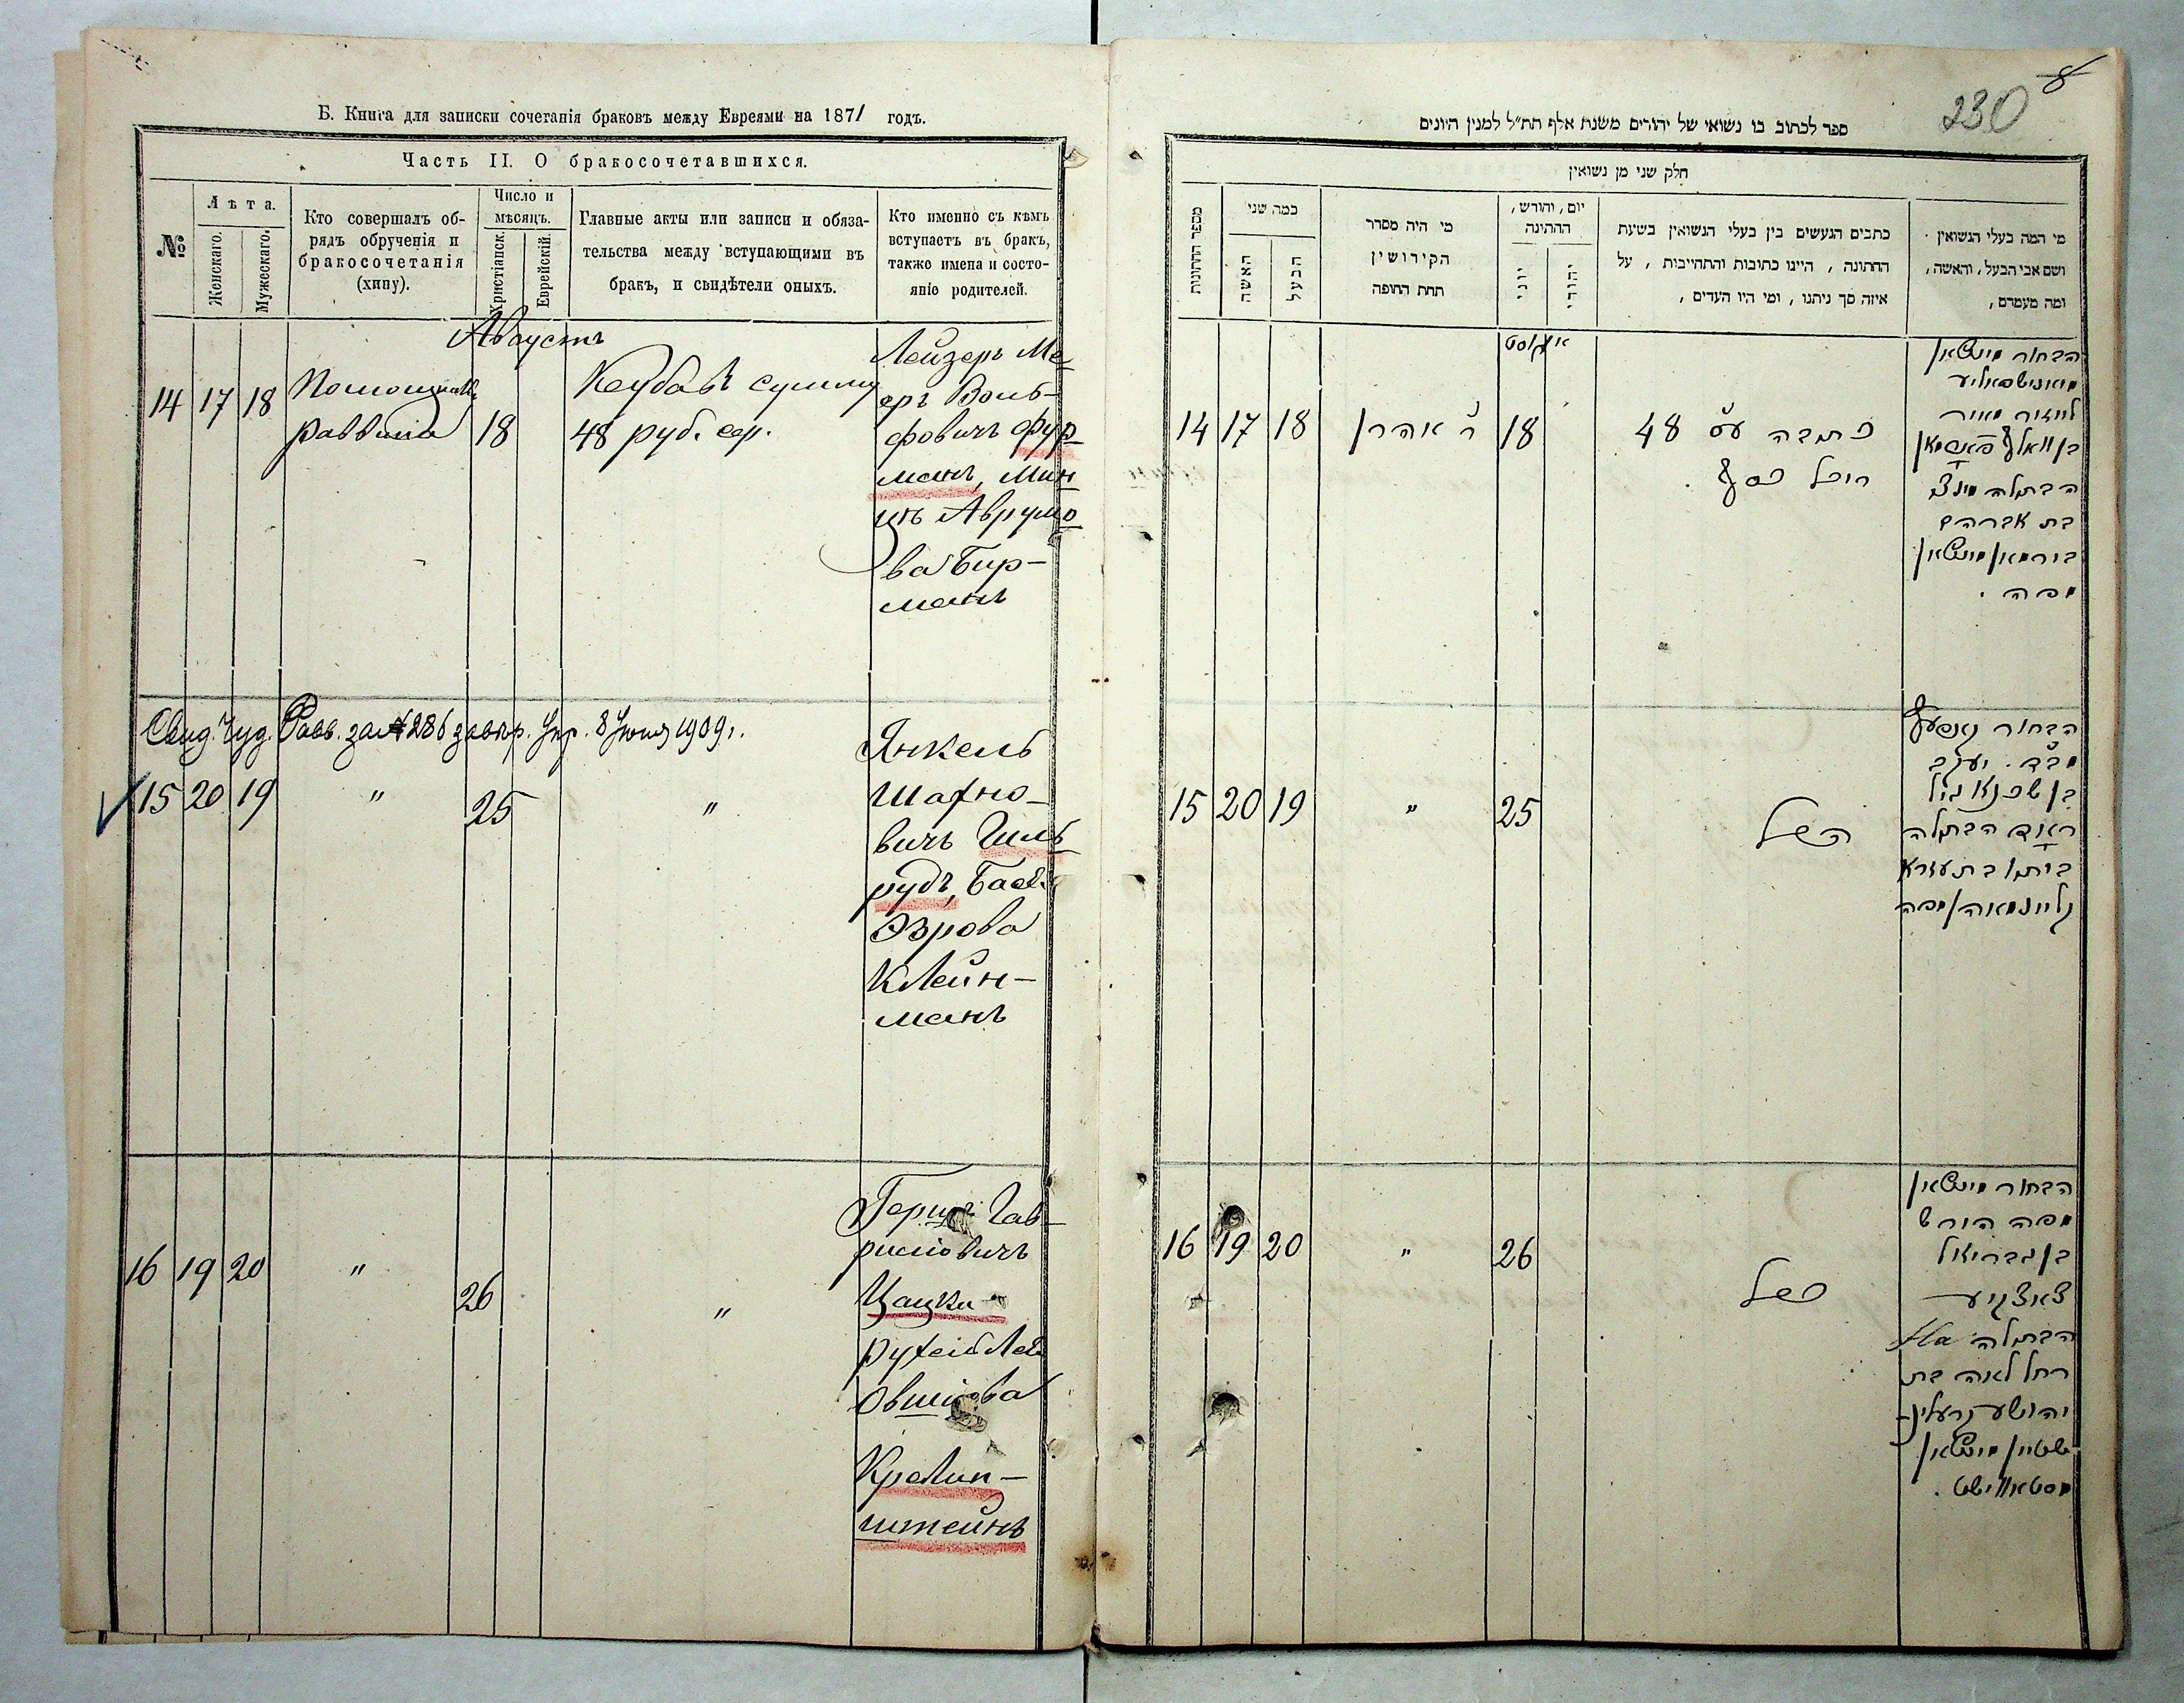 Б. Книга для записки сочетанія браковъ между Евреями на 1871 годъ.
Часть II. О бракосочетавшихся.
№
Лѣта.
Женскаго.
Мужескаго.
Кто совершалъ об-
рядъ обрученія и
бракосочетанія
(хипу).
Число и
мѣсяцъ.
Христіанск.
Еврейскій.
Главные акты или записи и обяза-
тельства между вступающими въ
бракъ, и свидѣтели оныхъ.
Кто именно съ кѣмъ
вступаетъ въ бракъ,
также имена и состо-
яніе родителей.
Августъ
14 17 18
Помощникъ
раввина
18
сумму
48 руб. сер.
Лейзеръ Ме
еръ Воль-
фовичъ Фур
манъ, Мин
цъ Аврумо
ва Бир-
манъ
Свид. Чуд. Равв. за № 286 8 Іюня 1909 г.
15 20 19 " 25 "
Янкель
Шафно-
вичъ Гиль
рудъ, Бася
Эзрова
Клейн-
манъ
16 19 20 " 26 "
Гершъ Гав-
риловичъ
Цацки
Рухля Лея
Овшіова
Крелин-
штейнъ
8
230
ספר לכתוב בו נשואי של יהודים משנת אלף תת"ל למנין היונים
חלק שני מן נשואין
מספר החתונות
כמה שני
האשה
הבעל
מי היה מסדר
הקידושין
תחת החופה
יום, וחודש,
החתונה
יוני
יהודי
כתבים הנעשים בין בעלי הנשואין בשעת
החתונה, היינו כתובות והתחייבות, על
איזה סך ניתנו, ומי היו העדים,
מי המה בעלי הנשואין
ושם אבי הבעל, והאשה,
ומה מעמדם,
14 17 18
ר' אהרן
18
כתובה 48
רובל כסף
הבחור
לייזר מאיר
בן וואלף
הבתולה מינצ
בת אברהם
בירמאן
מפה
15 20 19 " 25
הבחור
יעקב
בן שפנא גיל
ראוד הבתולה
בת עזרא
קליינמאן מפה
16 19 20 " 26
כנ"ל
הבחור
מפה הירש
בן גבריאל
צאצקיע
הבתולה
רחל לאה בת
יהושע קרעלינ
שטיין